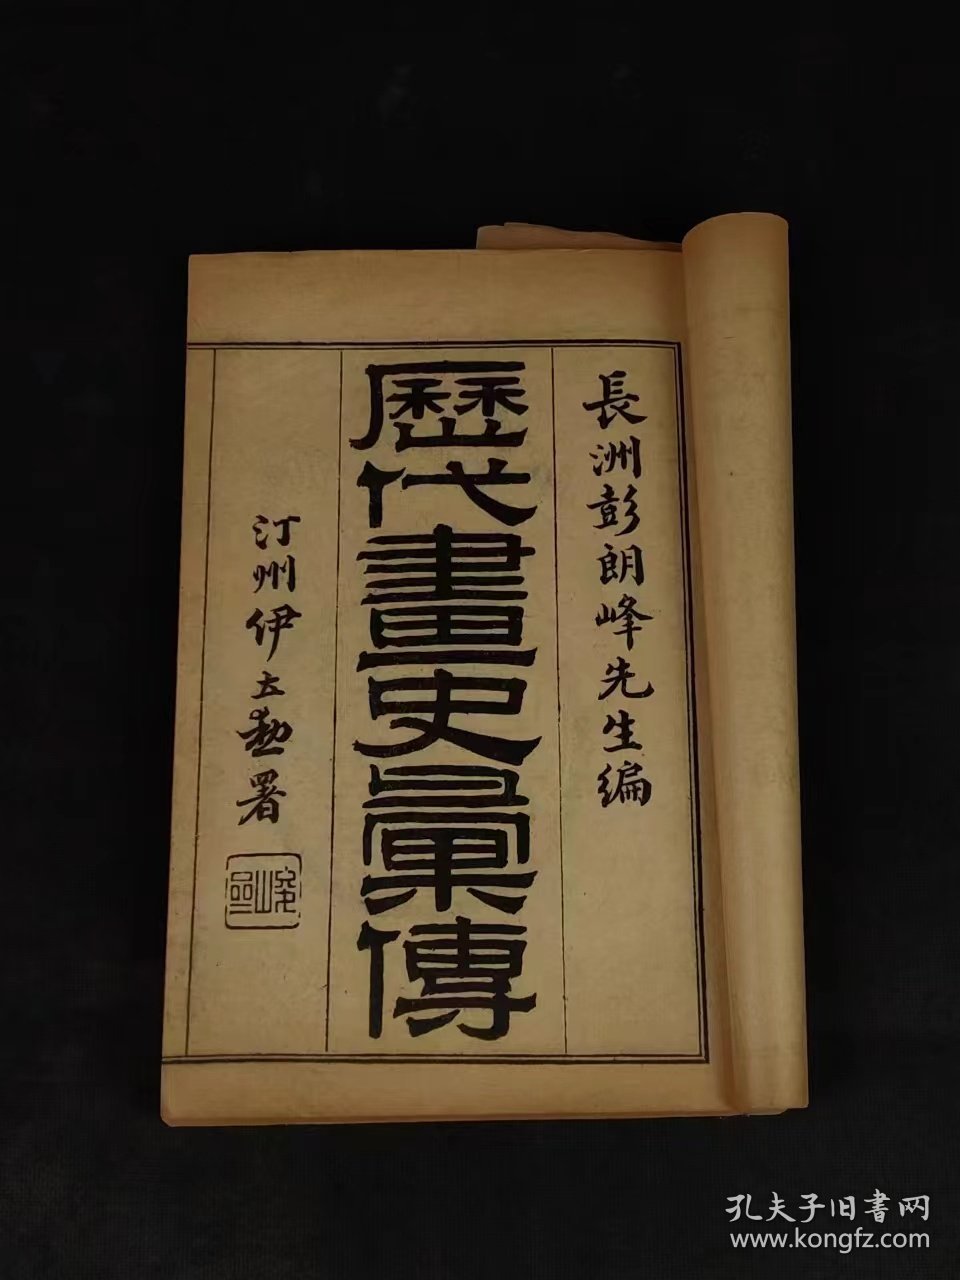 長洲彭朗峰先生編
歷代畫史彙傳
汀州伊立勳署
峻齋
孔夫子旧書网
www.kongfz.com